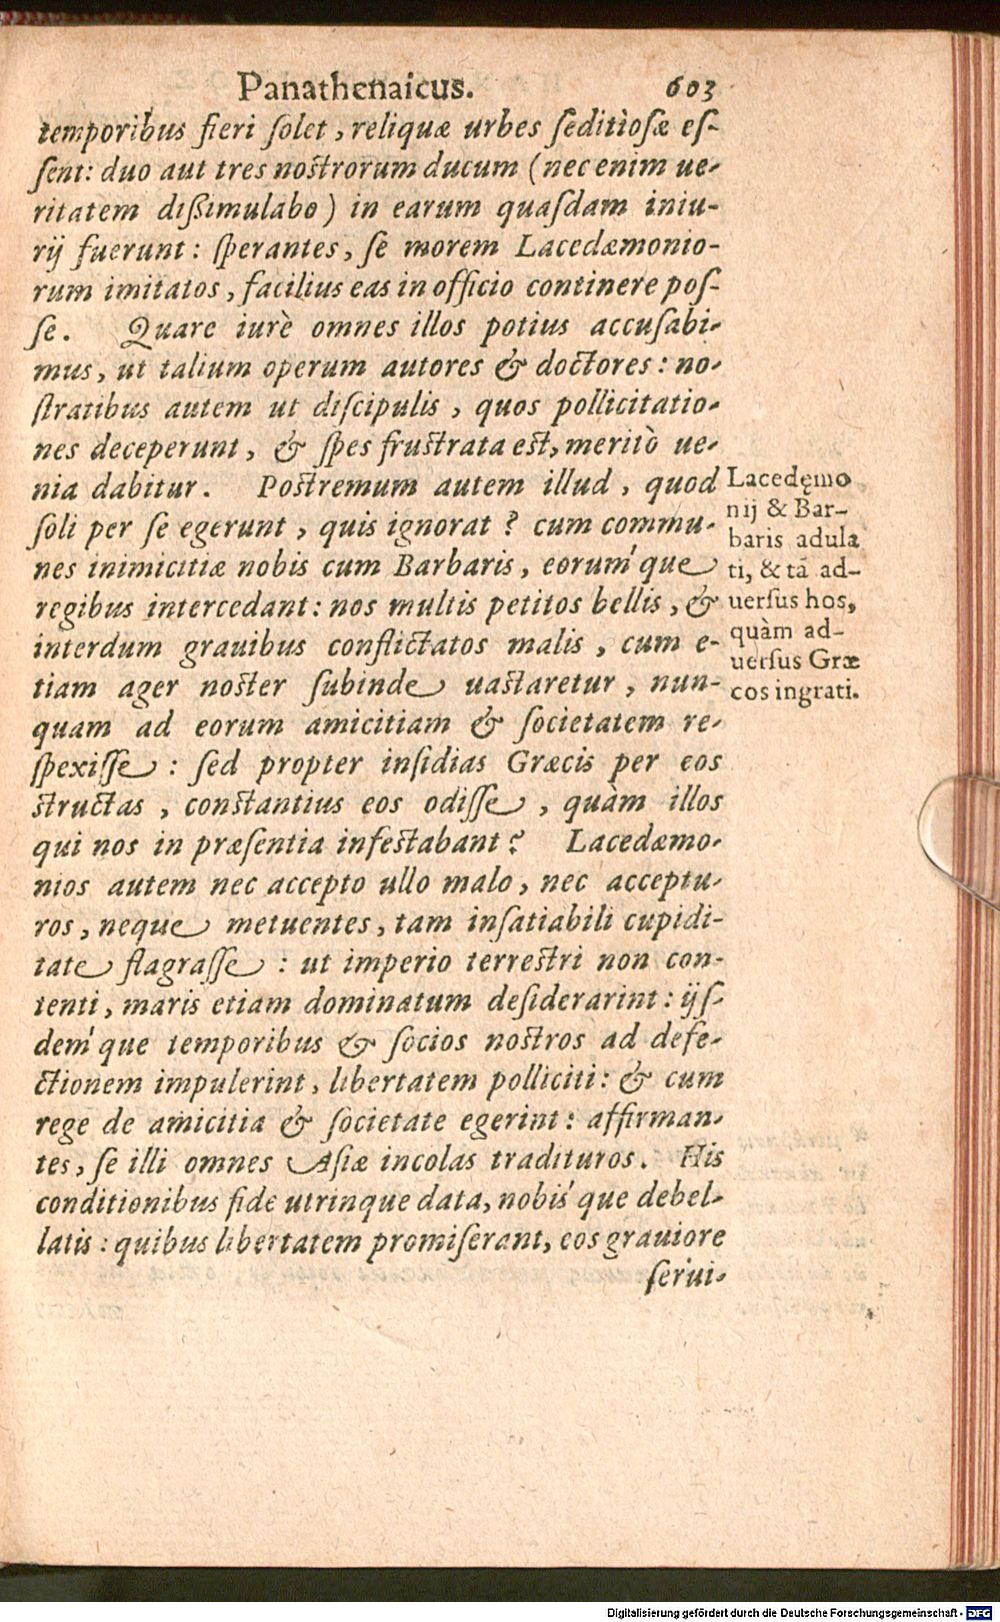 Panathenaicus. 603
temporibus fieri ſolet, reliquæ urbes ſeditioſæ eſ-
ſent: duo aut tres noſtrorum ducum (nec enim ue-
ritatem dißimulabo) in earum quaſdam iniu-
rij fuerunt: ſperantes, ſe morem Lacedæmonio-
rum imitatos, facilius eas in officio continere poſ-
ſe. Quare iurè omnes illos potius accuſabi-
mus, ut talium operum autores & doctores: no-
ſtratibus autem ut diſcipulis, quos pollicitatio-
nes deceperunt, & ſpes fruſtrata eſt, meritò ue-
nia dabitur. Poſtremum autem illud, quod
ſoli per ſe egerunt, quis ignorat? cum commu-
nes inimicitiæ nobis cum Barbaris, eorum'que
regibus intercedant: nos multis petitos bellis, &
interdum grauibus conflictatos malis, cum e-
tiam ager noſter ſubinde uaſtaretur, nun-
quam ad eorum amicitiam & ſocietatem re-
ſpexiſſe: ſed propter inſidias Græcis per eos
ſtructas, conſtantius eos odiſſe, quàm illos
qui nos in præſentia infeſtabant? Lacedæmo-
nios autem nec accepto ullo malo, nec acceptu-
ros, neque metuentes, tam inſatiabili cupidi-
tate flagraſſe: ut imperio terreſtri non con-
tenti, maris etiam dominatum deſiderarint: ijſ-
dem'que temporibus & ſocios noſtros ad defe-
ctionem impulerint, libertatem polliciti: & cum
rege de amicitia & ſocietate egerint: affirman-
tes, ſe illi omnes Aſiæ incolas tradituros. His
conditionibus fide utrinque data, nobis'que debel-
latis: quibus libertatem promiſerant, eos grauiore
ſerui-
Lacedęmo
nij & Bar-
baris adula
ti, & tā ad-
uerſus hos,
quàm ad-
uerſus Græ
cos ingrati.
Digitalisierung gefördert durch die Deutsche Forschungsgemeinschaft - DFG